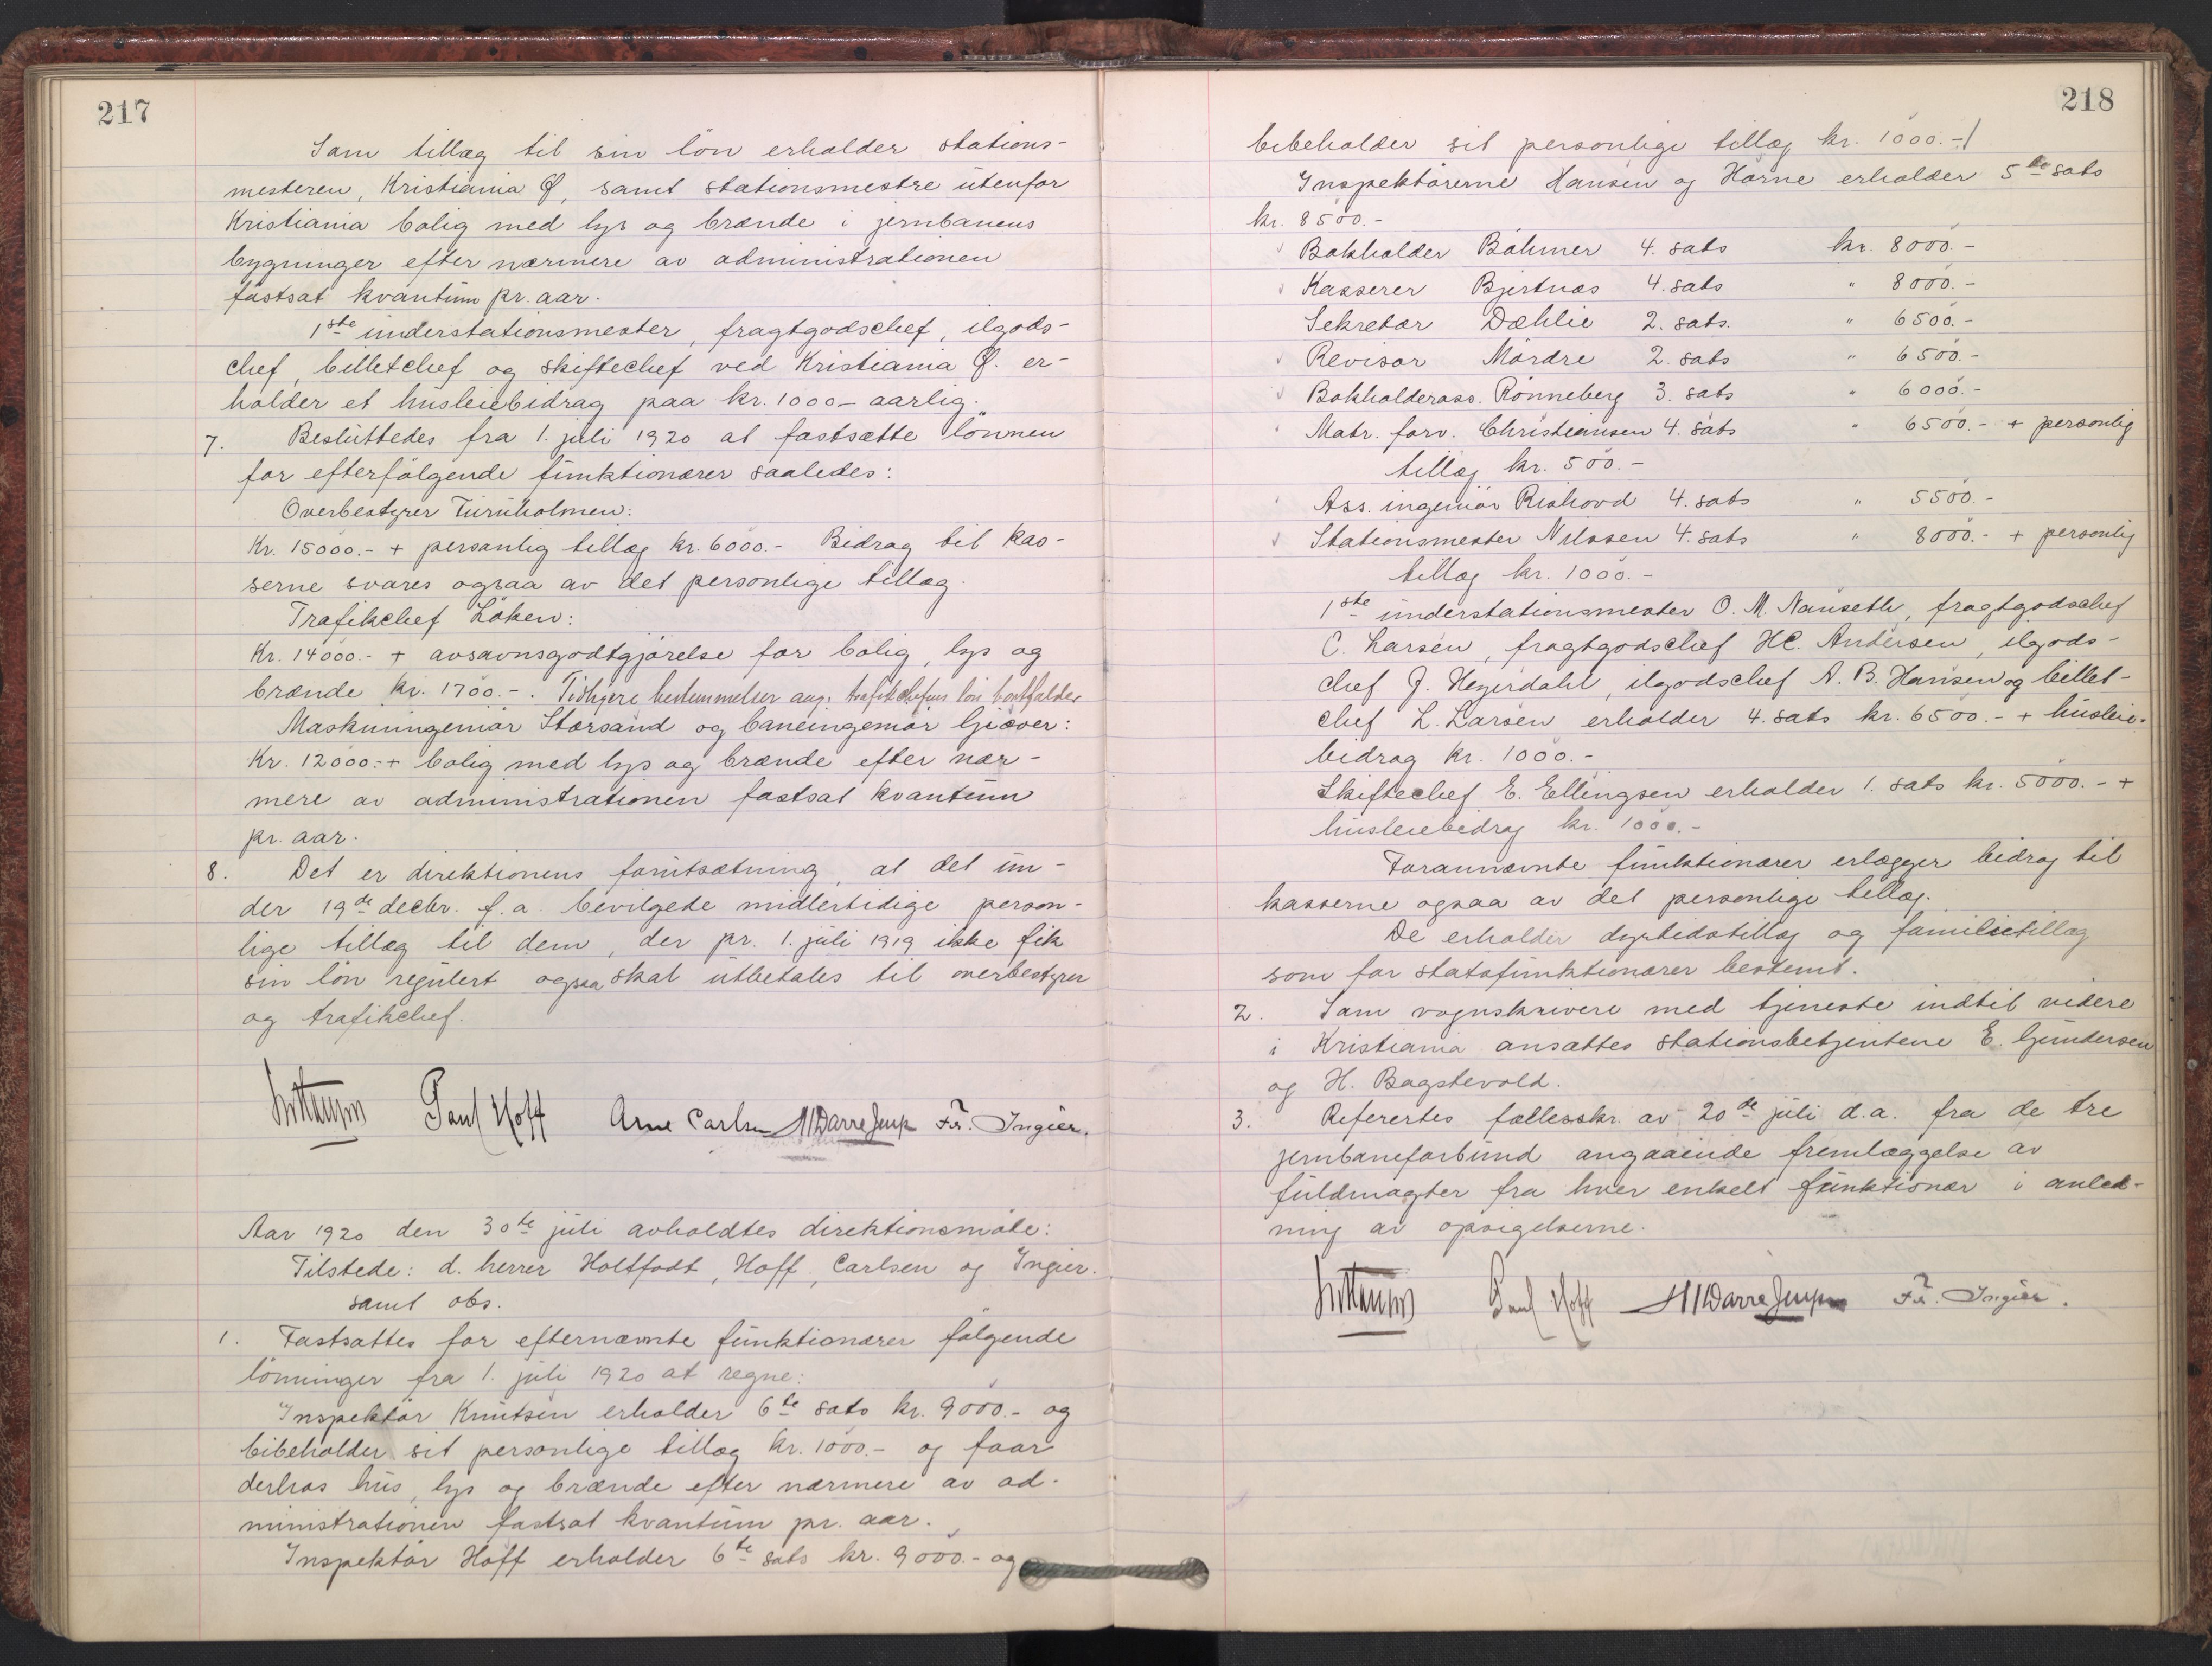 217
Som tillæg til sin lön erholder stations-
mesteren, Kristiania Ø, samt stationsmestre utenfor
Kristiania bolig med lys og brænde i jernbanens
bygninger efter nærmere av administrationen
fastsat kvantum pr. aar.
1ste understationsmester, fragtgodschef, ilgods-
chef, billetchef og skiftechef ved Kristiania Ø. er-
holder et husleiebidrag paa kr. 1000- aarlig.
7. Besluttedes fra 1. juli 1920 at fastsætte lönnen
for efterfölgende funktionærer saaledes:
Overbestyrer Turuholmen:
Kr. 15000.- + personlig tillæg kr. 6000.- Bidrag til kas-
serne svares ogsaa av det personlige tillæg.
Trafikchef Löken:
Kr. 14000.- + avsavnsgodtgjörelse for bolig, lys og
brænde kr. 1700.-. Tidligere bestemmelser ang. trafikchefens lön bortfalder
Maskiningeniör Storsand og baneingeniör Gjæver:
Kr. 12000.- + bolig med lys og brænde efter nær-
mere av administrationen fastsat kvantum
pr. aar.
8. Det er direktionens forutsætning, at det un-
der 19de decbr. f.a. bevilgede midlertidige person-
lige tillæg til dem, der pr. 1. juli 1919 ikke fik
sin lön regulert ogsaa skal utbetales til overbestyrer
og trafikchef.
Paul Hoff Arne Carlsen N Darre Jenssen Fr. Ingier.
Aar 1920 den 30te juli avholdtes direktionsmöte:
Tilstede: d. herrer Holtfodt, Hoff, Carlsen og Ingier.
samt obs.
1. Fastsattes for efternævnte funktionærer fölgende
lönninger fra 1. juli 1920 at regne:
Inspektör Knutsen erholder 6te sats kr. 9000.- og
bibeholder sit personlige tillæg kr. 1000.- og faar
derhos hus, lys og brænde efter nærmere av ad-
ministrationen fastsat kvantum pr. aar.
Inspektör Hoff erholder 6te sats kr. 9000.- og
218
bibeholder sit personlige tillæg kr. 1000.-
Inspektörerne Hansen og Horne erholder 5te sats
kr. 8500.-
Bokholder Böhmer 4. sats kr. 8000.-
Kasserer Bjertnæs 4. sats " 8000.-
Sekretær Dæhlie 2. sats. " 6500.-
Revisor Mördre 2. sats " 6500.-
Bokholderass. Rönneberg 3. sats " 6000.-
Matr. forv. Christiansen 4. sats " 6500.- + personlig
tillæg kr. 500.-
Ass. ingeniör Rishovd 4. sats " 5500.-
Stationsmester Nilssen 4. sats " 8000.- + personlig
tillæg kr. 1000.-
1ste understationsmester O. M. Nauseth, fragtgodschef
C. Larsen, fragtgodschef HC. Andersen, ilgods-
chef J. Heyerdahl, ilgodschef A. B. Hansen og billet-
chef L. Larsen erholder 4. sats kr. 6500.- + husleie-
bidrag kr. 1000.-
Skiftechef E. Ellingsen erholder 1. sats kr. 5000.- +
husleiebidrag kr. 1000.-
Forannævnte funktionærer erlægger bidrag til
kasserne ogsaa av det personlige tillæg.
De erholder dyrtidstillæg og familietillæg
som for statsfunktionærer bestemt.
2. Som vognskrivere med tjeneste indtil videre
i Kristiania ansattes stationsbetjentene E. Gundersen
og H. Bagstevold.
3. Refertes fællesskr. av 20de juli d.a. fra de tre
jernbaneforbund angaaende fremlæggelse av
fuldmagter fra hver enkelt funktionær i anled-
ning av opsigelserne.
Paul Hoff N Darre Jenssen Fr. Ingier.